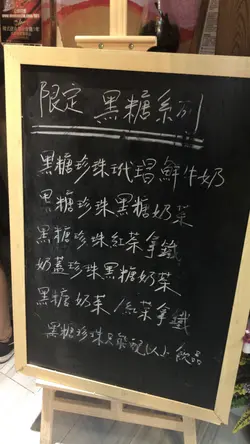 限定 黑糖系列
黑糖珍珠玳瑁鮮牛奶
黑糖珍珠黑糖奶茶
黑糖珍珠紅茶拿鐵
奶蓋珍珠黑糖奶茶
黑糖奶茶/紅茶拿鐵
黑糖珍珠只能配以上飲品